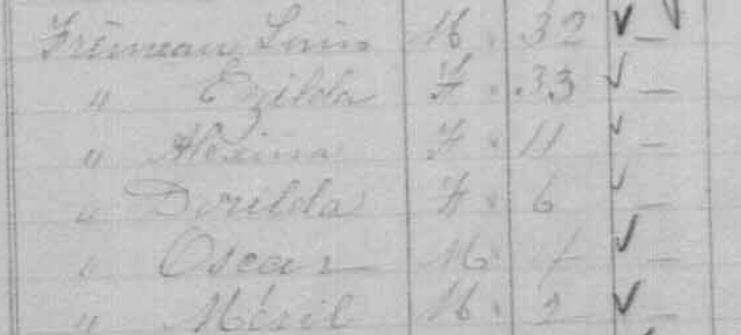 Frémeau Louis M. 32
" Ezilda F. 33
" Alexina F. 11
" Dorilda F. 6
" Oscar M. 4
" Méril M. 2